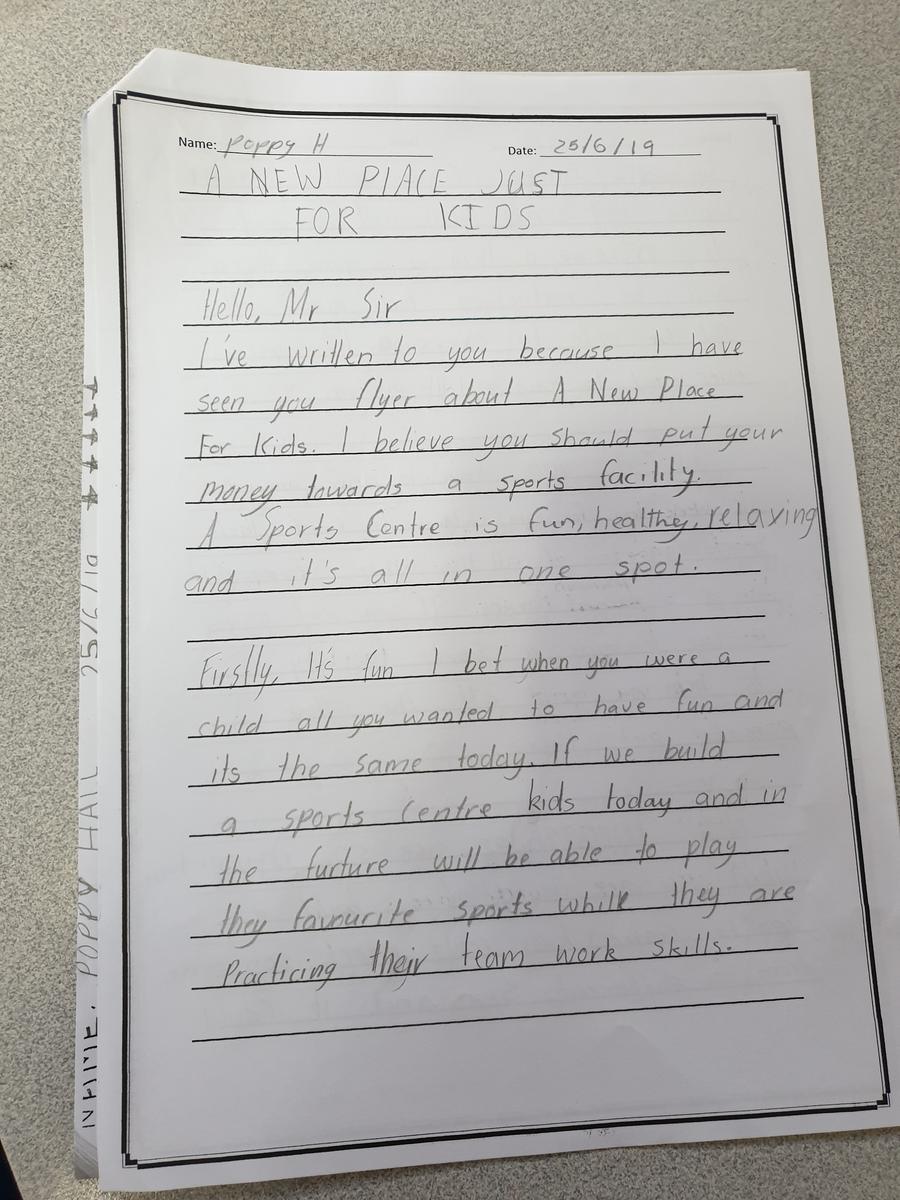 Name: Poppy H Date: 25/6/19
A NEW PLACE JUST
FOR KIDS
Hello, Mr Sir
I've written to you because I have
seen you flyer about A New Place
For Kids. I believe you should put your
money towards a sports facility.
A Sports Centre is fun, healthy, relaxing
and it's all in one spot.
Firstly, It's fun I bet when you were a
child all you wanted to have fun and
its the same today. If we build
a sports Centre kids today and in
the furture will be able to play
they favourite sports while they are
Practicing their team work skills.
NAME: POPPY HALL 25/6/19